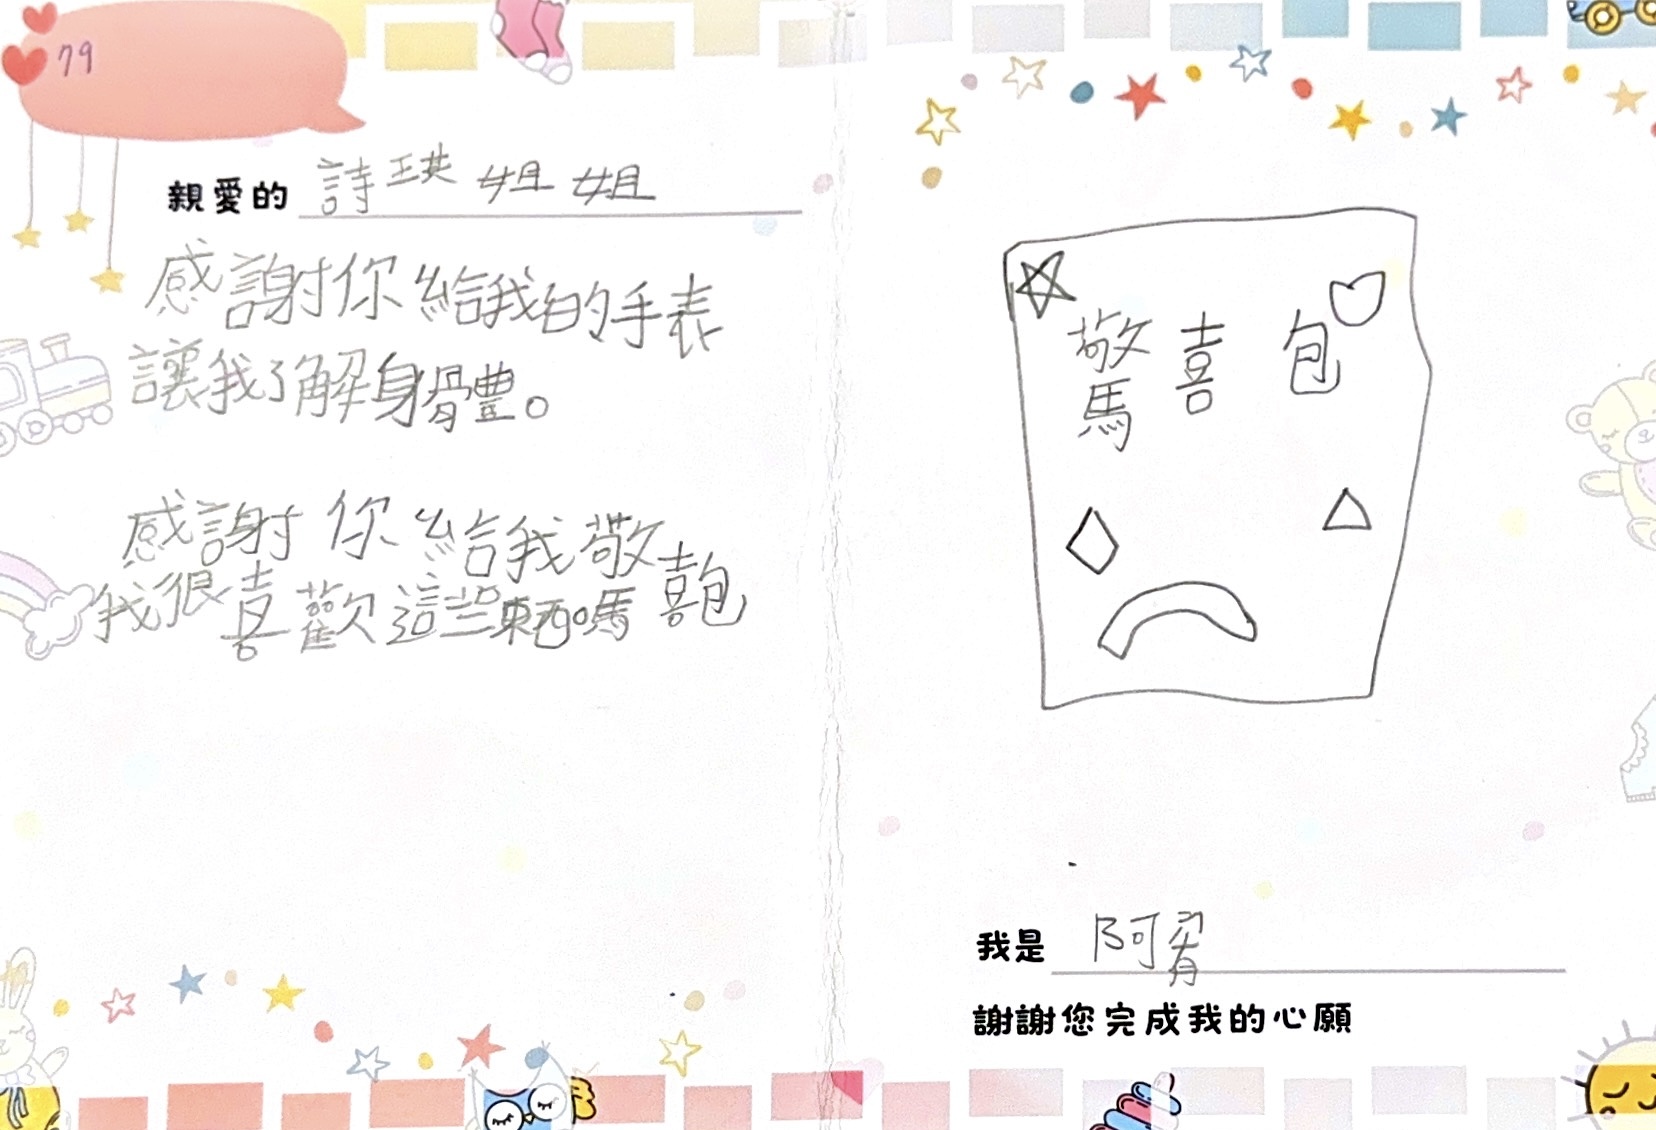 79
親愛的 詩瑛姐姐
感謝你給我的手表
讓我了解身體。
感謝你給我敬喜包
我很喜歡這些東西嗎
驚喜包
我是 阿
謝謝您完成我的心願